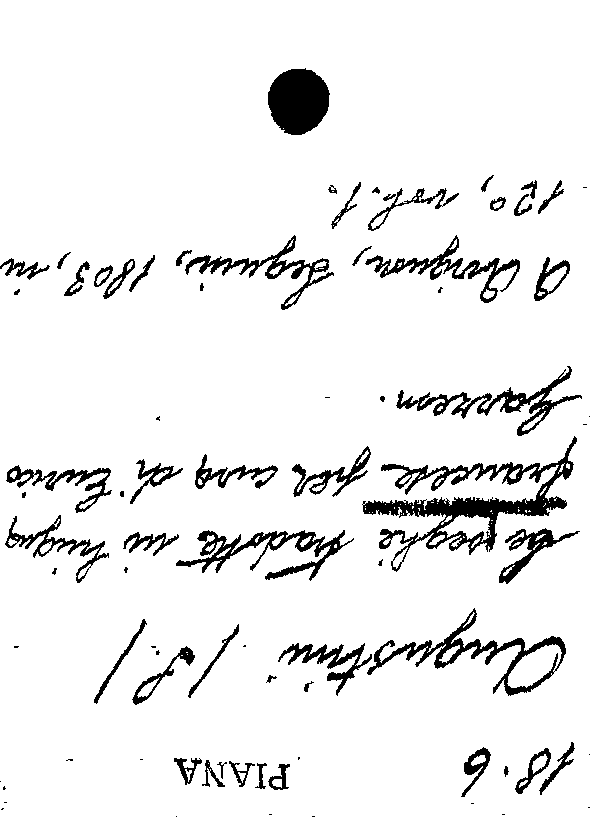 18.6 PIANA
Augustin /S./
Le veglie tradotte in lingua
francese per cura di Enrico
Garrem.
A Avignon, Seguin, 1803, in
12°, vol. 1.